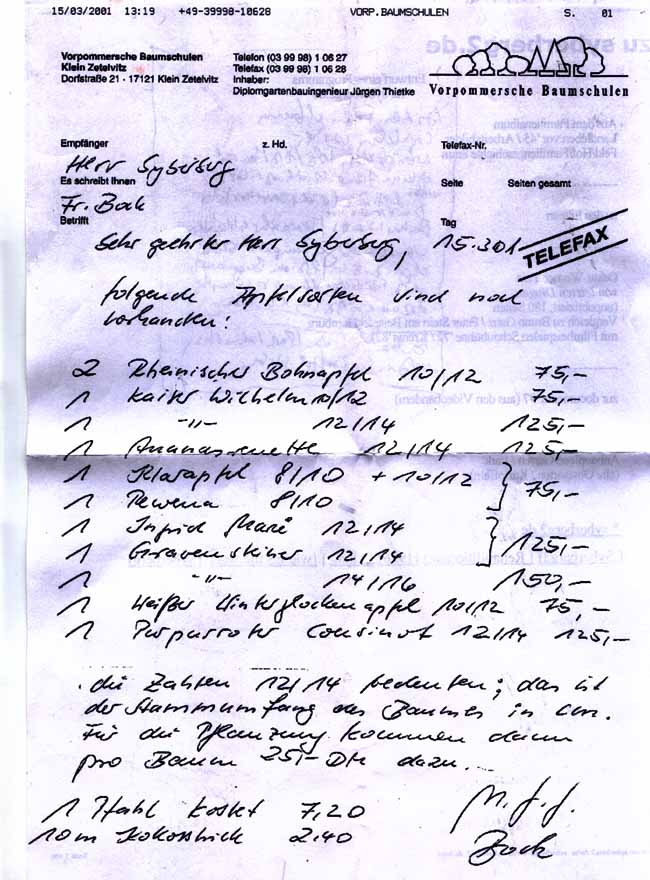 15/03/2001 13:19 +49-39998-10628 VORP.BAUMSCHULEN S. 01
Vorpommersche Baumschulen
Klein Zetelvitz
Dorfstraße 21 · 17121 Klein Zetelvitz
Telefon (03 99 98) 1 06 27
Telefax (03 99 98) 1 06 28
Inhaber:
Diplomgartenbauingenieur Jürgen Thietke
Vorpommersche Baumschulen
Empfänger z. Hd. Telefax-Nr.
Herr Syberberg
Es schreibt Ihnen Seite Seiten gesamt
Fr. Bock
Betrifft Tag
Sehr geehrter Herr Syberberg, 15.3.01
TELEFAX
folgende Apfelsorten sind noch
vorhanden:
2 Rheinischer Bohnapfel 10/12 75,-
1 Kaiser Wilhelm 10/12 75,-
1 -"- 12/14 125,-
1 Ananasrenette 12/14 125,-
1 Klarapfel 8/10 + 10/12 } 75,-
1 Rewena 8/10
1 Ingrid Marie 12/14 } 125,-
1 Gravensteiner 12/14
1 -"- 14/16 150,-
1 Weißer Winterglockenapfel 10/12 75,-
1 Purpurroter Cousinot 12/14 125,-
die Zahlen 12/14 bedeuten; das ist
der Stammumfang des Baumes in cm.
Für die Pflanzung kommen dann
pro Baum 25,- DM dazu.
1 Pfahl kostet 7,20
10m Kokosstrick 2.40
M. f. G.
Bock